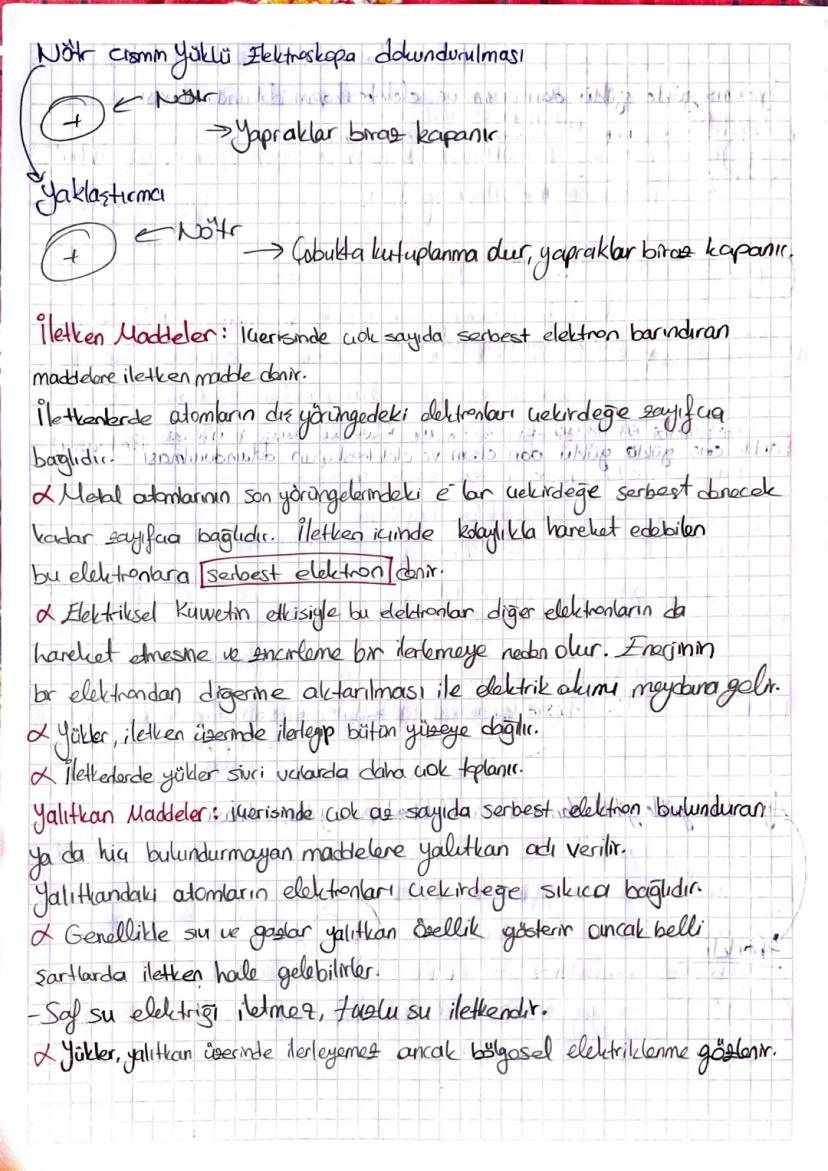 Nötr cismin Yüklü Elektroskopa dokundurulması
+ ← Nötr
→ Yapraklar biraz kapanır
Yaklaştırma
+ ← Nötr
→ Çubukta kutuplanma olur, yapraklar biraz kapanır.
İletken Maddeler: İçerisinde çok sayıda serbest elektron barındıran
maddelere iletken madde denir.
İletkenlerde atomların dış yörüngedeki elektronları çekirdeğe zayıfça
bağlıdır.
α Metal atomlarının son yörüngelerindeki e⁻lar çekirdeğe serbest denecek
kadar zayıfça bağlıdır. İletken içinde kolaylıkla hareket edebilen
bu elektronlara serbest elektron denir.
α Elektriksel Kuvvetin etkisiyle bu elektronlar diğer elektronların da
hareket etmesine ve zincirleme bir ilerlemeye neden olur. Enerjinin
bir elektrondan diğerine aktarılması ile elektrik akımı meydana gelir.
α Yükler, iletken üzerinde ilerleyip bütün yüzeye dağılır.
α İletkenlerde yükler sivri uçlarda daha çok toplanır.
Yalıtkan Maddeler: içerisinde çok az sayıda serbest elektron bulunduran
ya da hiç bulundurmayan maddelere yalıtkan adı verilir.
Yalıtkandaki atomların elektronları çekirdeğe sıkıca bağlıdır.
α Genellikle sıvı ve gazlar yalıtkan özellik gösterir ancak belli
şartlarda iletken hale gelebilirler.
- Saf su elektriği iletmez, tuzlu su iletkendir.
α Yükler, yalıtkan üzerinde ilerleyemez ancak bölgesel elektriklenme gözlenir.